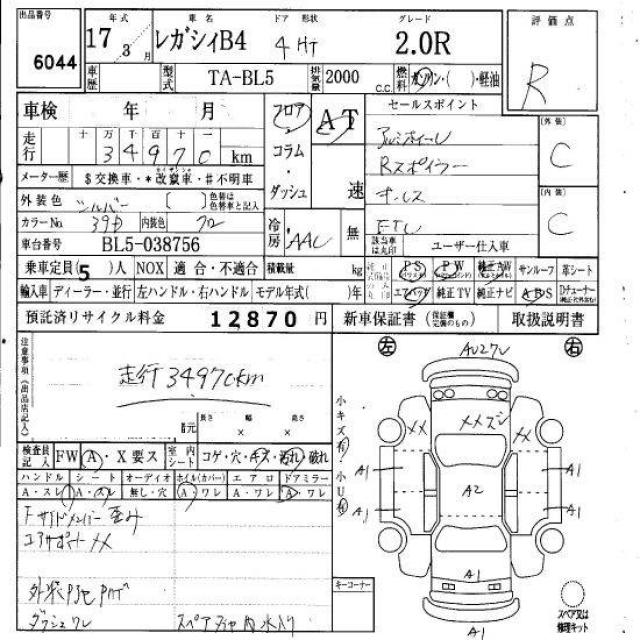 出品番号 年式 車名 ドア 形状 グレード 評価点
6044 17年 3月 レガシィB4 4 HT 2.0R R
車歴 型式 TA-BL5 排気量 2000 c.c. 燃料 ガソリン・( )・軽油
車検 年 月 フロア AT セールスポイント
走行 十万千百十一 34970 km コラム アルミホイール 外装 C
Rスポイラー
メーター歴 $交換車・*改竄車・#不明車 ダッシュ 速 キーレス 内装 C
外装色 シルバー [ ] 色替は色替車と記入 ETC
カラーNo. 39D 内装色 クロ 冷房 AAC 無 該当車は丸印 ユーザー仕入車
車台番号 BL5-038756
乗車定員(5)人 NOX 適合・不適合 積載量 kg PS PW 純正AW サンルーフ 革シート
輸入車 ディーラー・並行 左ハンドル・右ハンドル モデル年式( )年 エアバッグ 純正TV 純正ナビ ABS Dチューナー
預託済リサイクル料金 12870円 新車保証書(保証欄記載のもの) 取扱説明書
注意事項(出品店記入)
走行34970km
諸元 長さ 幅 高さ
× ×
検査員記入 FW A・X要ス 室内シート コゲ・穴・キズ・汚れ・破れ
ハンドル シート オーディオ ホイル(カバー) エアロ ドアミラー
A・スレ A・スレ 無し・穴 A・ワレ A・ワレ A・ワレ
Fサイドメンバー歪み
コアサポートXX
外装P3セPハゲ
ダッシュワレ スペアタイヤ内水入り
左 右
小キズ有 小U有
XX XX A1 A1 A1 A1 A2 A1 A1
キーコーナー
スペア又は修理キット